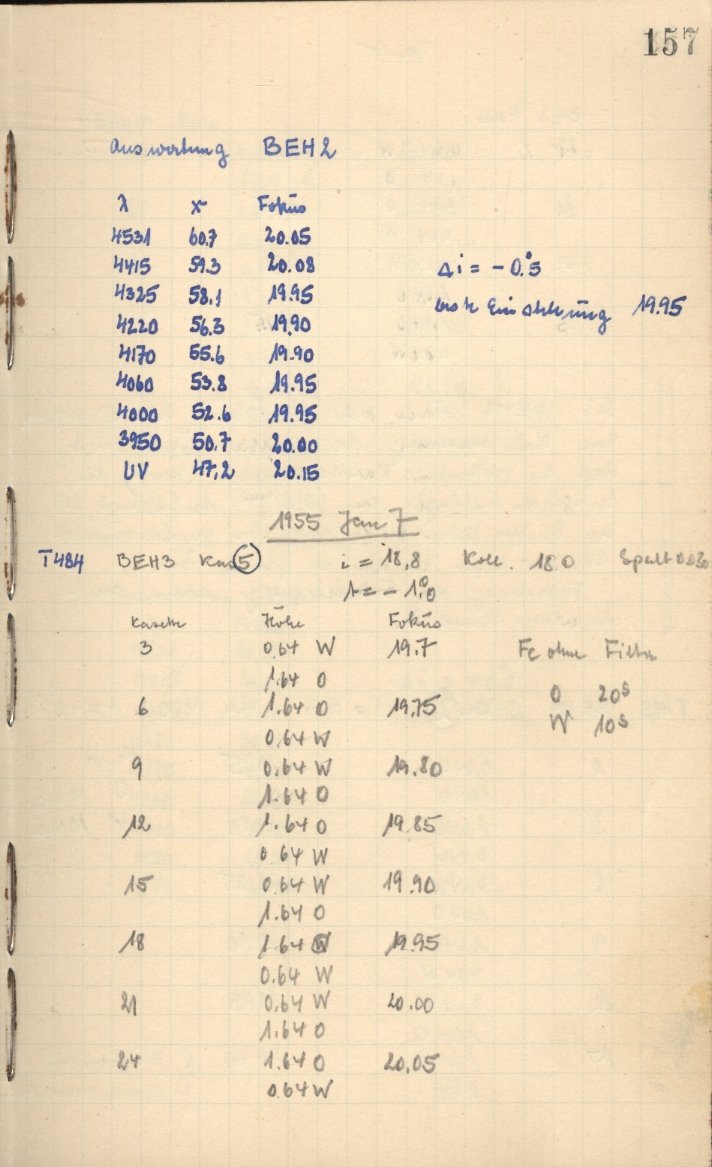 157
Auswertung BEH2
λ x Fokus
4531 60.7 20.05
4415 59.3 20.08
4325 58.1 19.95
4220 56.3 19.90
4170 55.6 19.90
4060 53.8 19.95
4000 52.6 19.95
3950 50.7 20.00
UV 47,2 20.15
Δi = -0.°5
beste Einstellung 19.95
1955 Jan 7
T484 BEH3 Kas 5 i = 18,8 Koll. 18.0 Spalt 0.030
= -1.°0
Kasette Höhe Fokus
3 0.64 W 19.7 Fe ohne Filter
1.64 O
6 1.64 O 19,75 O 20s
0.64 W W 10s
9 0.64 W 19.80
1.64 O
12 1.64 O 19,85
0.64 W
15 0.64 W 19.90
1.64 O
18 1.64 19.95
0.64 W
21 0,64 W 20.00
1.64 O
24 1.64 O 20,05
0.64 W